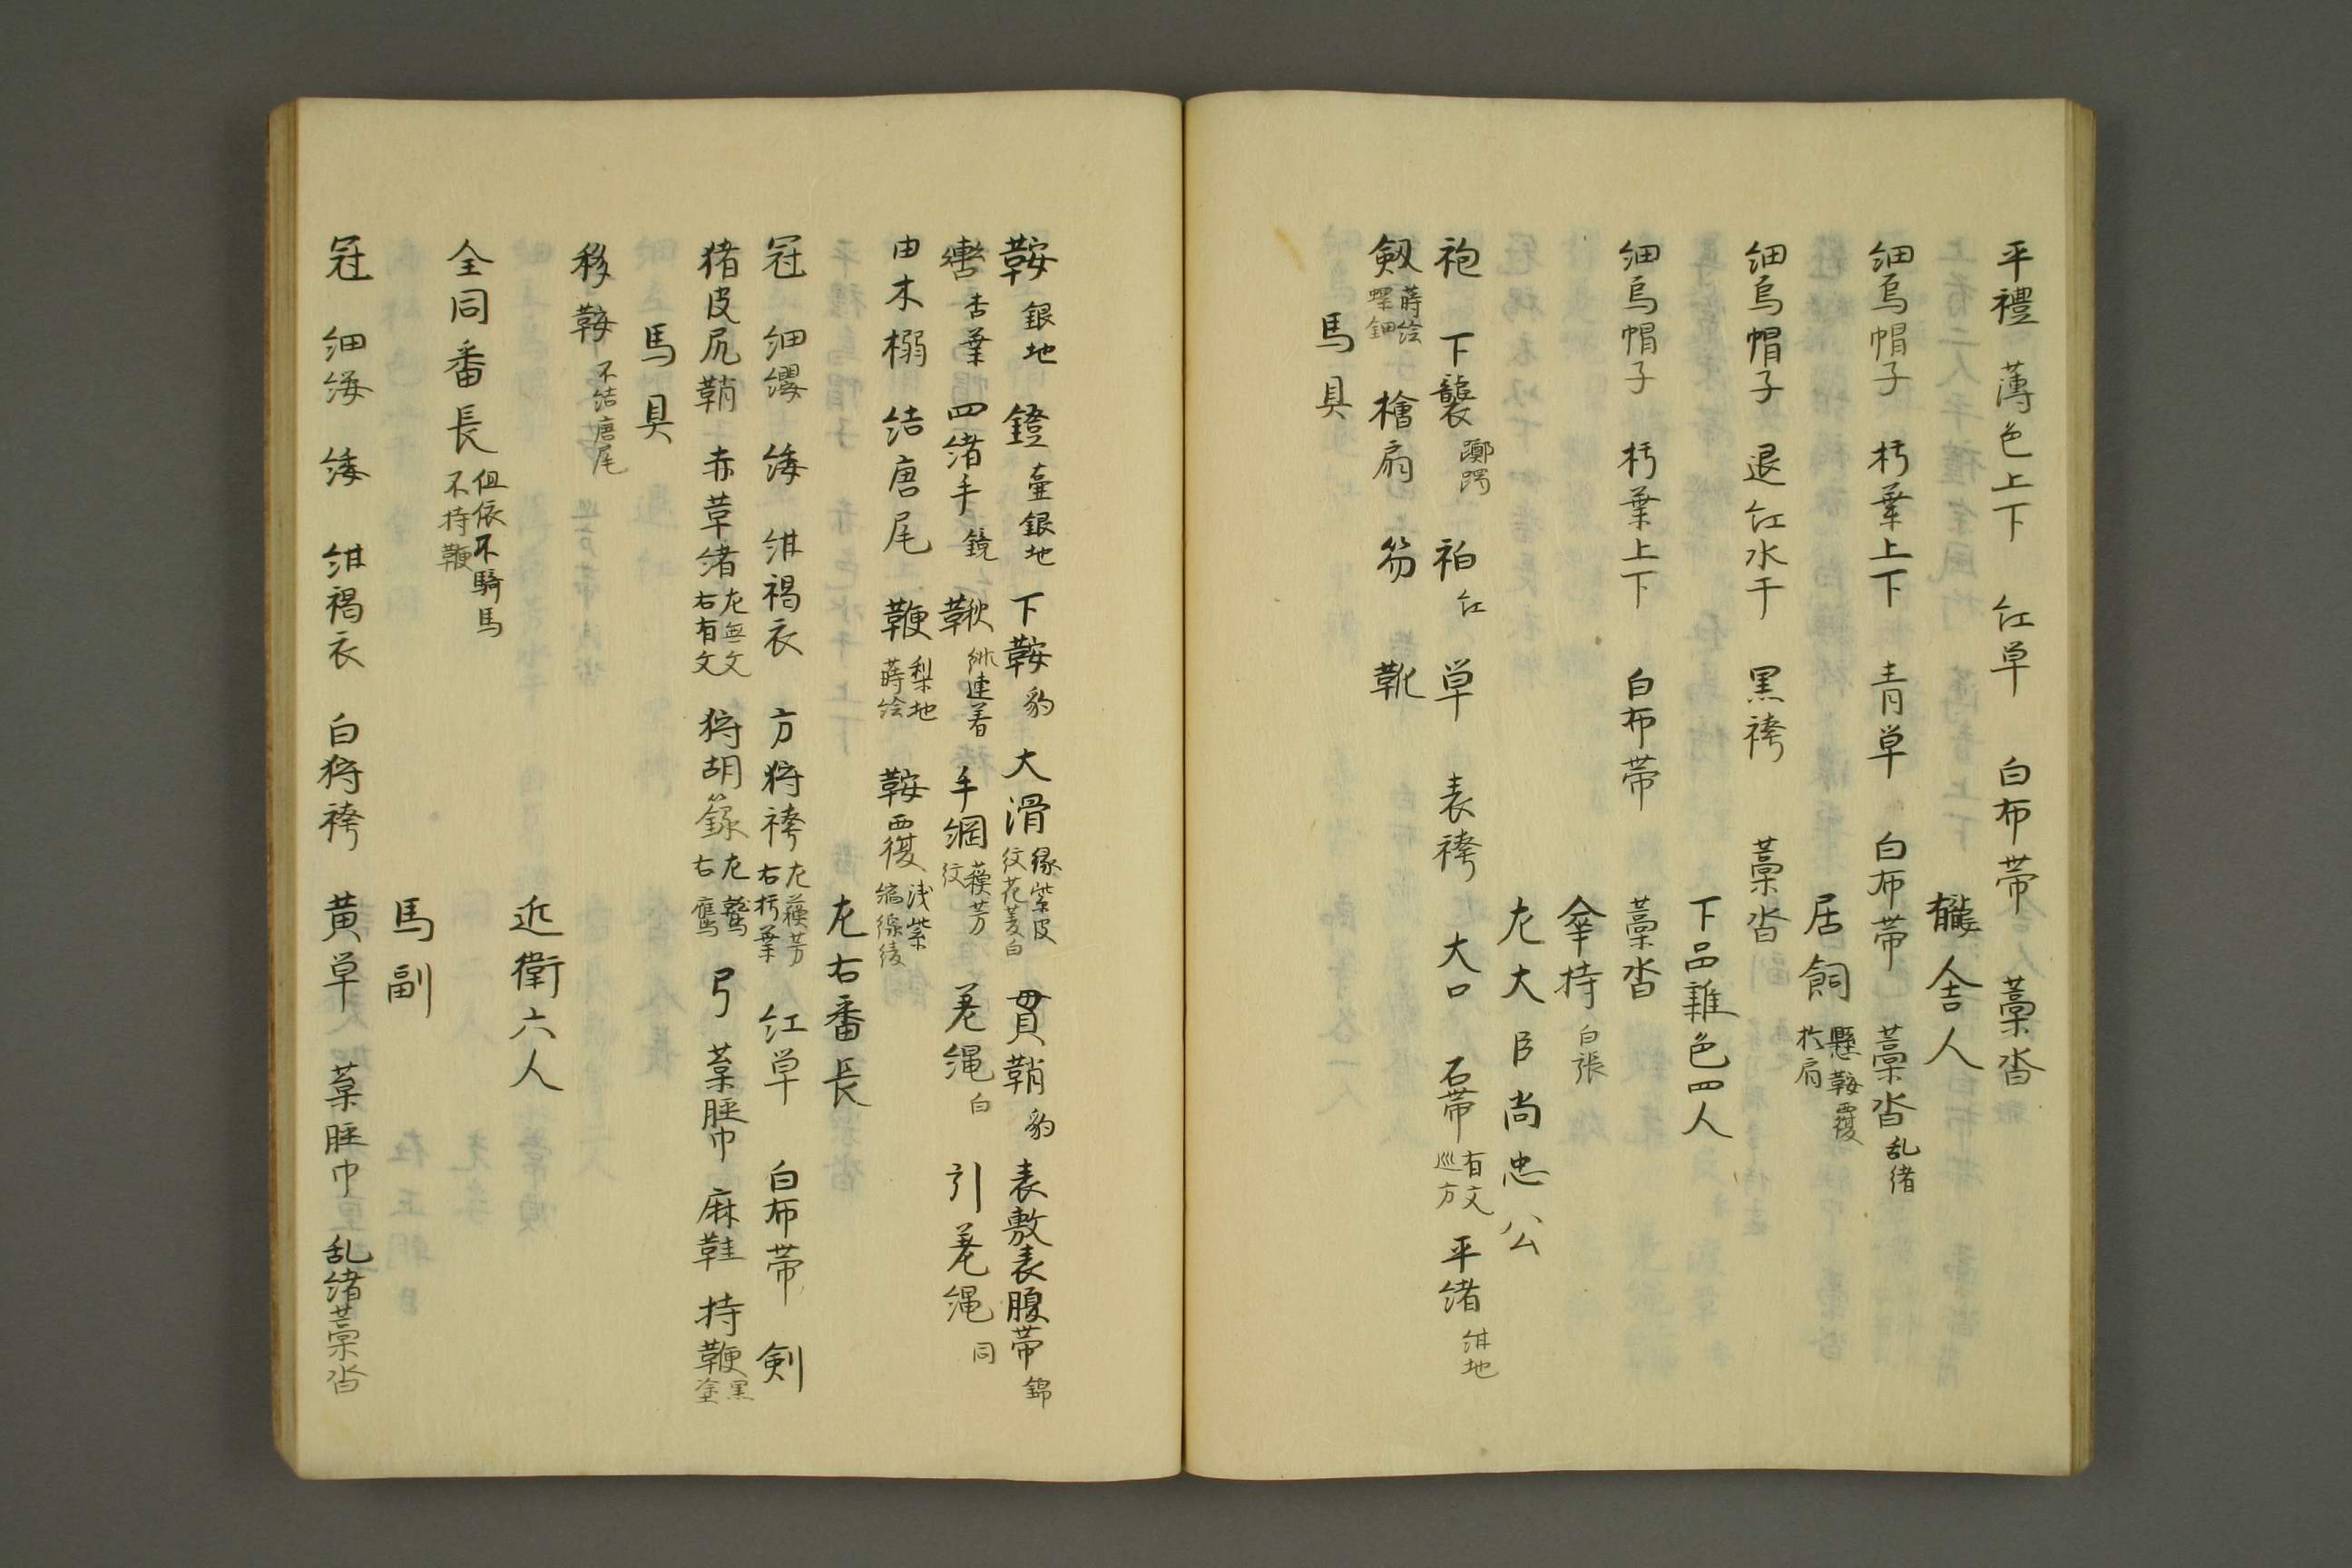 平禮 薄色上下 紅單 白布帯 藁沓
龓舎人
細烏帽子 朽葉上下 青單 白布帯 藁沓 乱緒
居飼 懸鞍覆於肩
細烏帽子 退紅水干 黒袴 藁沓
下品雜色四人
細烏帽子 朽葉上下 白布帯 藁沓
傘持 白張
左大臣尚忠公
袍 下襲 躑躅 袙 紅 單 表袴 大口 石帯 有文巡方 平緒 紺地
剱 蒔絵螺鈿 檜扇 笏 靴
馬具
鞍 銀地 鐙 壷銀地 下鞍 豹 大滑 縁紫皮紋花菱白 貫鞘 豹 表敷表腹帯 錦
轡 杏葉 四緒手 鏡 鞦 連着 手綱 蘓芳紋 差縄 白 引差縄 同
由木搦 結唐尾 鞭 梨地蒔絵 鞍覆 浅紫
左右番長
冠 細纓 緌 紺褐衣 方狩袴 左蘓芳右朽葉 紅單 白布帯 剣
猪皮尻鞘 赤革緒 左無文右有文 狩胡簶 左鷲右鷹 弓 葈脛巾 麻鞋 持鞭 黒塗
馬具
移鞍 不結唐尾
近衛六人
全同番長 但依不騎馬不持鞭
馬副
冠 細緌 緌 紺褐衣 白狩袴 黄單 葈脛巾 乱緒藁沓